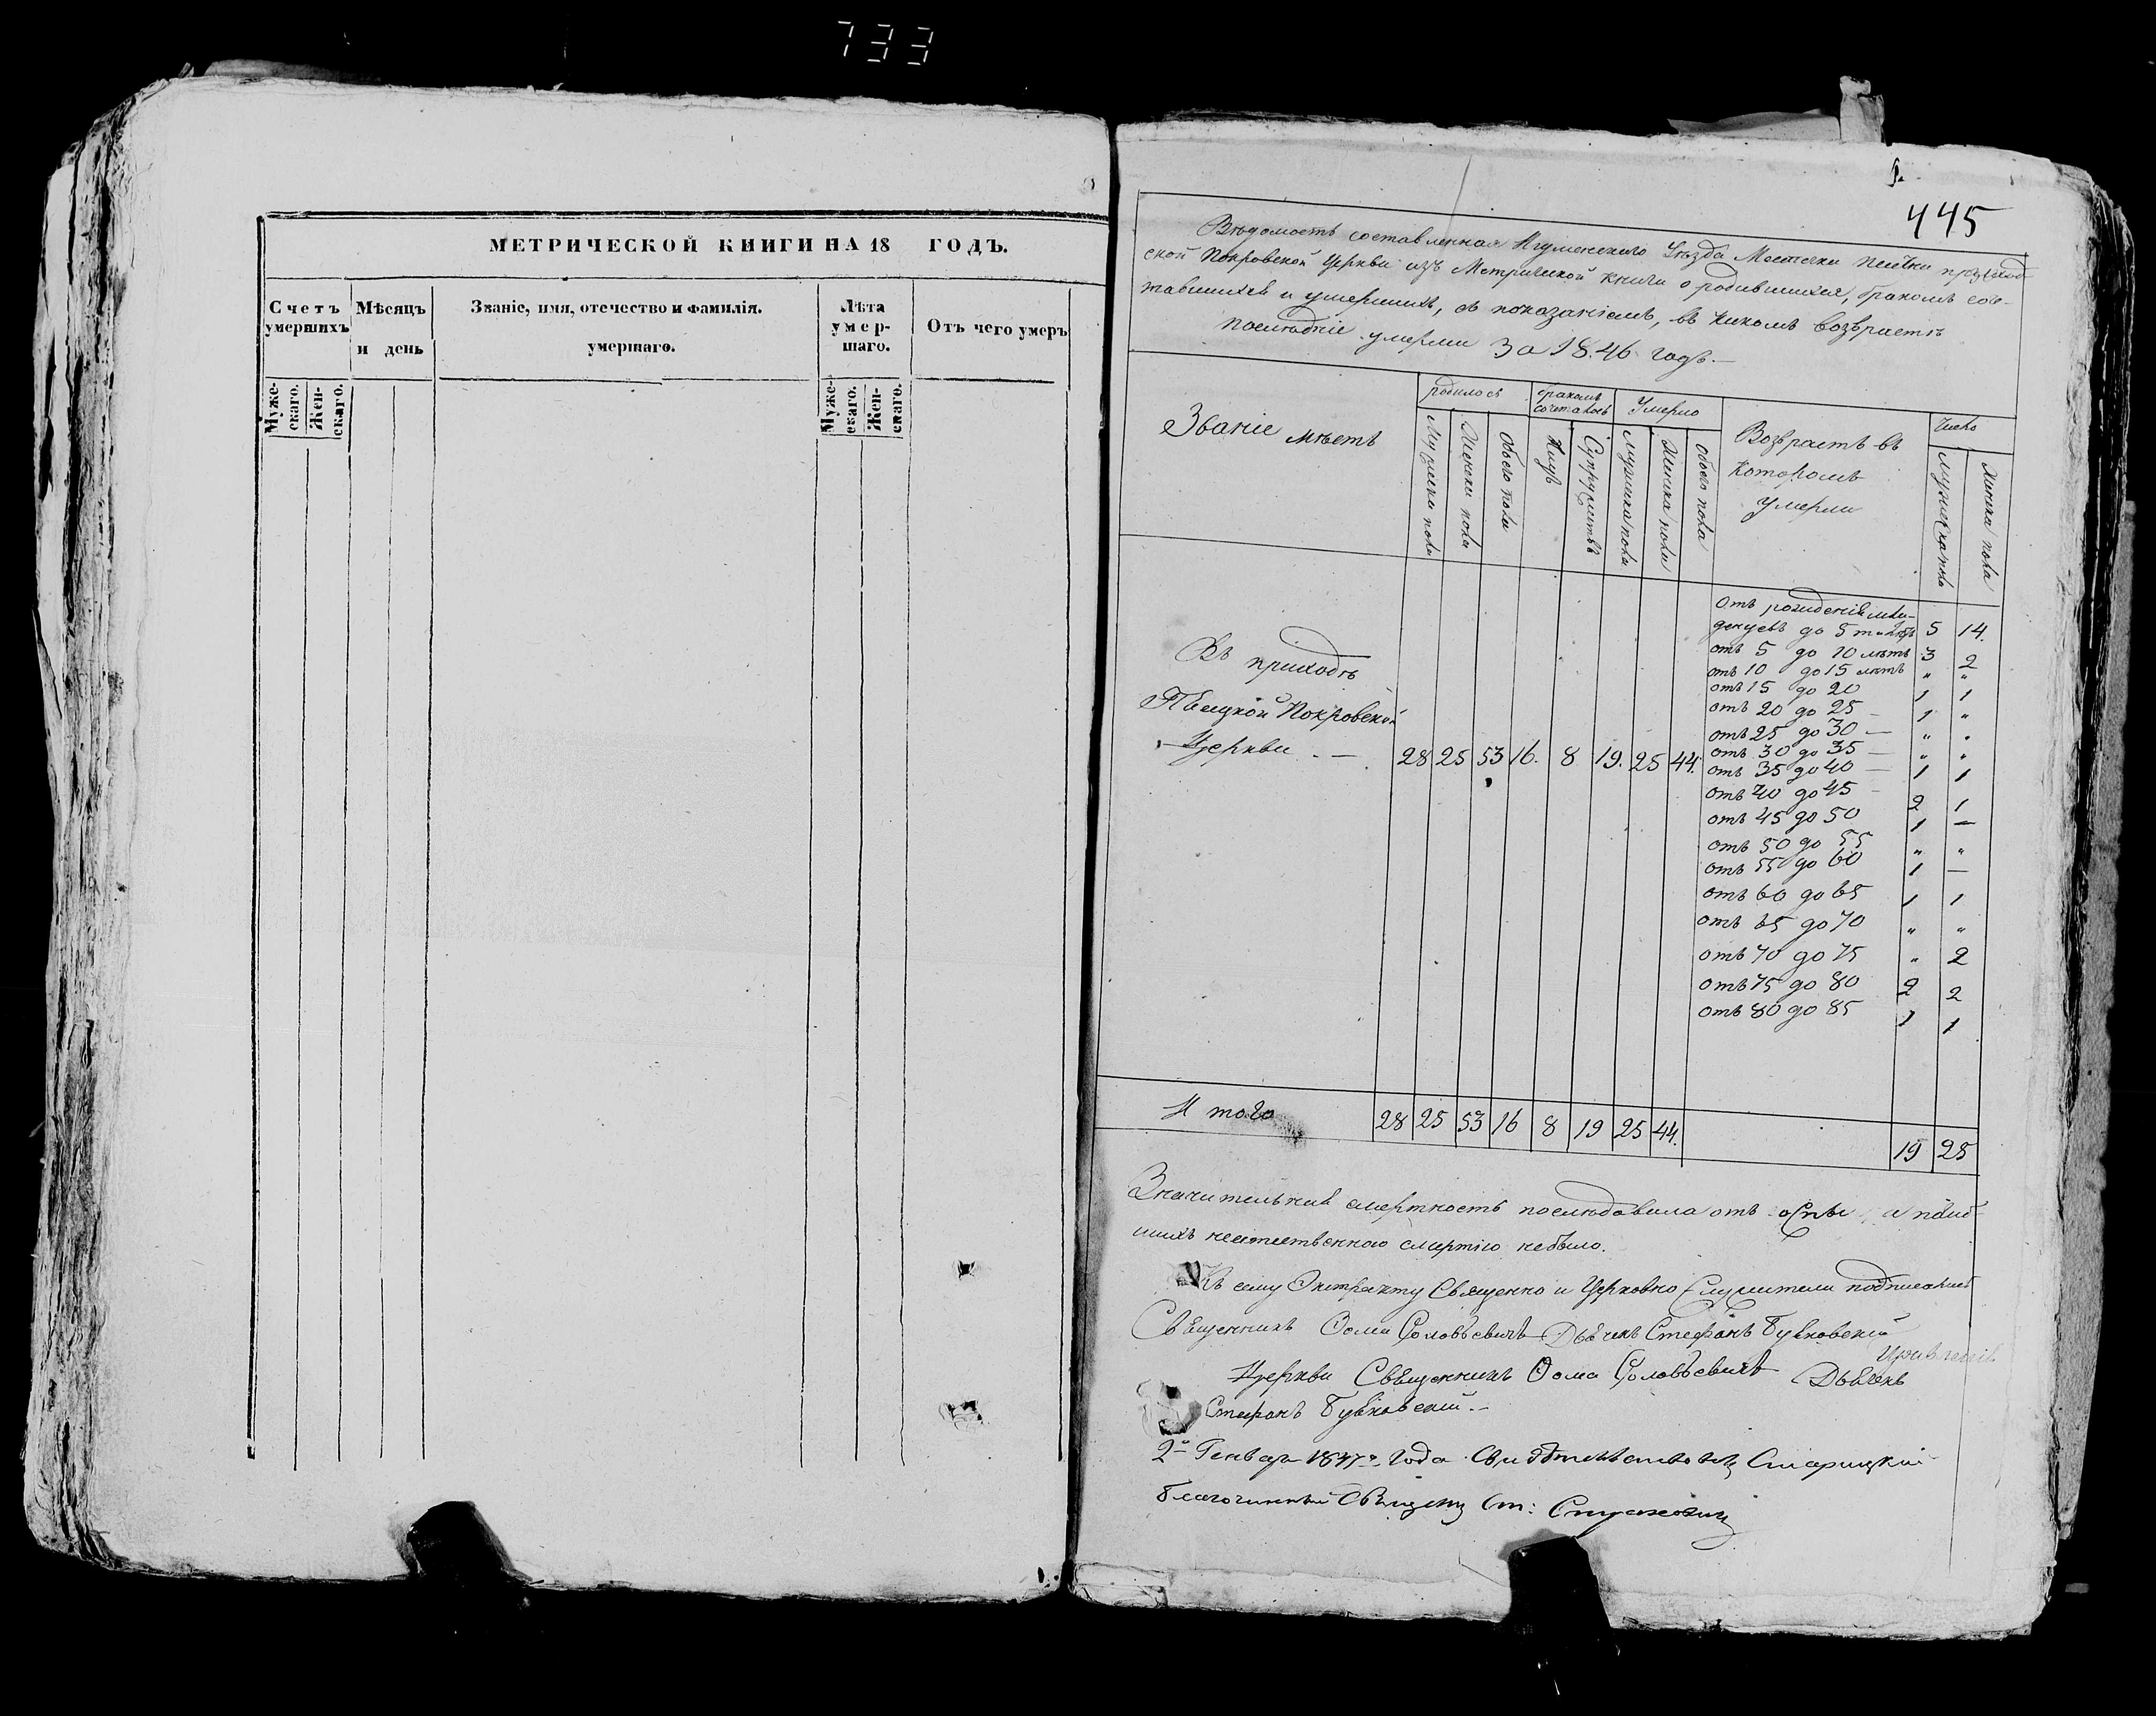 733
МЕТРИЧЕСКОЙ КНИГИ НА 18 ГОДЪ.
Счетъ умершихъ
Мѣсяцъ и день
Званіе, имя, отечество и фамилія. умершаго.
Лѣта умер-шаго.
Отъ чего умеръ
Муже-скаго.
Жен-скаго.
Муже-скаго.
Жен-скаго.
445
Вѣдомость составленная Игуменскаго Уѣзда Мѣстечка
ской Покровской Церкви изъ Метрической книги о родившихся, бракомъ соче-
тавшихся и умершихъ, съ показаніемъ, въ какомъ возърастѣ
послѣдніе умерли за 1846 годъ.—
Званіе мѣстъ
родилось
бракомъ сочеталось
Умерло
Возърастъ въ которомъ умерли
Число
Мужеска пола
Женска пола
Обоего пола
Лицъ
Супружествъ
Мужеска пола
Женска пола
Обоего пола
Мужеска пола
Женска пола
Отъ рожденія мла-
денцевъ до 5 5 14.
отъ 5 до 10 лѣтъ 3 2
отъ 10 до 15 лѣтъ „ „
отъ 15 до 20 1 1
отъ 20 до 25 — 1 „
отъ 25 до 30 — „ „
отъ 30 до 35 — „ „
отъ 35 до 40 — 1 1
отъ 40 до 45 — 2 1
отъ 45 до 50 1 —
отъ 50 до 55 „ „
отъ 55 до 60 1 —
отъ 60 до 65 1 1
отъ 65 до 70 „ „
отъ 70 до 75 „ 2
отъ 75 до 80 2 2
отъ 80 до 85 1 1
Въ приходѣ
Покровской
Церкви — 28 25 53 16. 8 19. 25 44.
Итого 28 25 53 16 8 19 25 44. 19 25
Значительная смертность послѣдовала отъ оспы а
шихъ неестественною смертію небыло.
Къ сему Экстракту Священно и Церковно Служители подписались
Священникъ Ѳома Соловьевичъ Дьячекъ Стефанъ
Церкви Священникъ Ѳома Соловьевичъ Дьячекъ
Стефанъ
2го Генваря 1847го года. Старицкій
Благочинный Ст: